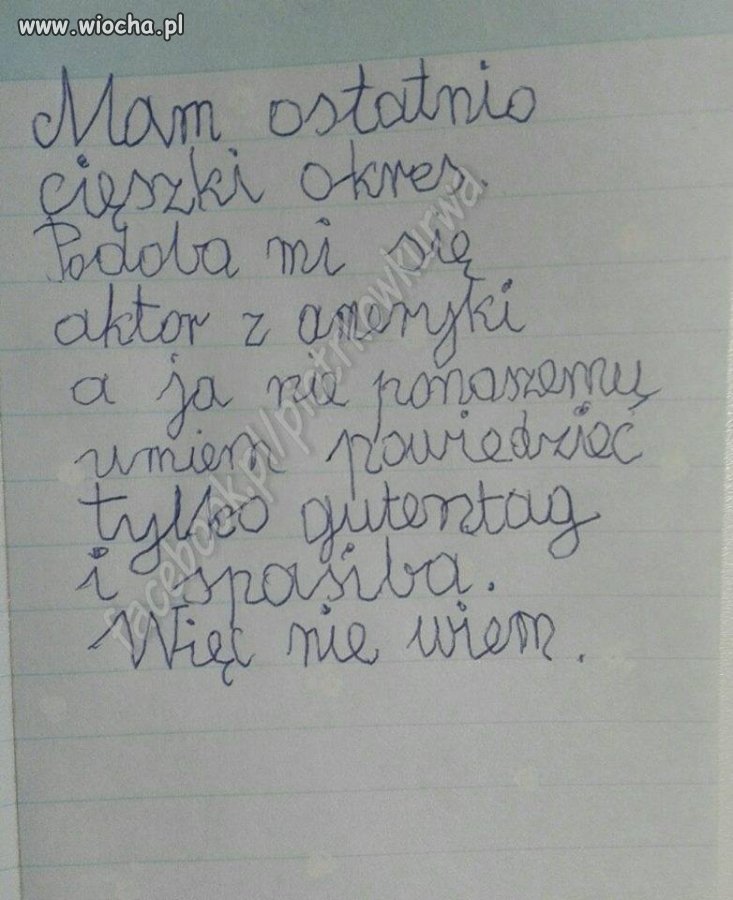 www.wiocha.pl
Mam ostatnio
cięszki okres.
Podoba mi się
aktor z ameryki
a ja nie ponaszemu
umiem powiedzieć
tylko gutentag
i spasiba.
Więc nie wiem.
facebook.pl/piotrkowkurwa